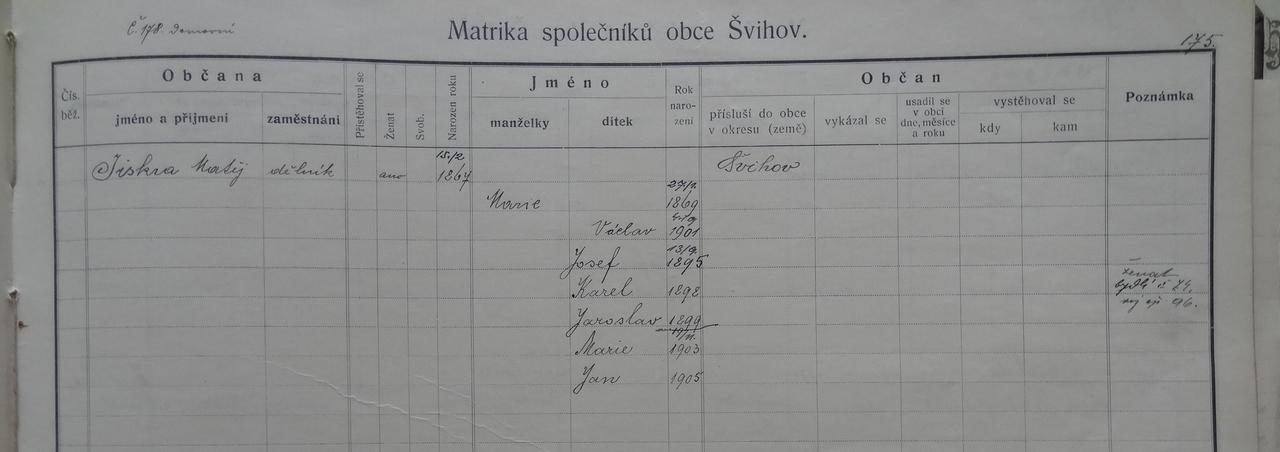 Č 178. Domovní
Matrika společníků obce Švihov.
175.
Čís. běž.
Občana
jméno a přijmení
zaměstnání
Přistěhoval se
Ženat
Svob.
Narozen roku
Jméno
manželky
dítek
Rok naro- zení
Občan
přísluší do obce v okresu (země)
vykázal se
usadil se v obci dne, měsíce a roku
vystěhoval se
kdy
kam
Poznámka
Jiskra Matěj dělník ano 15/2 1867 Švihov
Marie 1869
Václav 1901
Josef 13/9. 1895
Karel 1898 ženat bydlí č 74.
Jaroslav 1899 96.
Marie 1903
Jan 1905